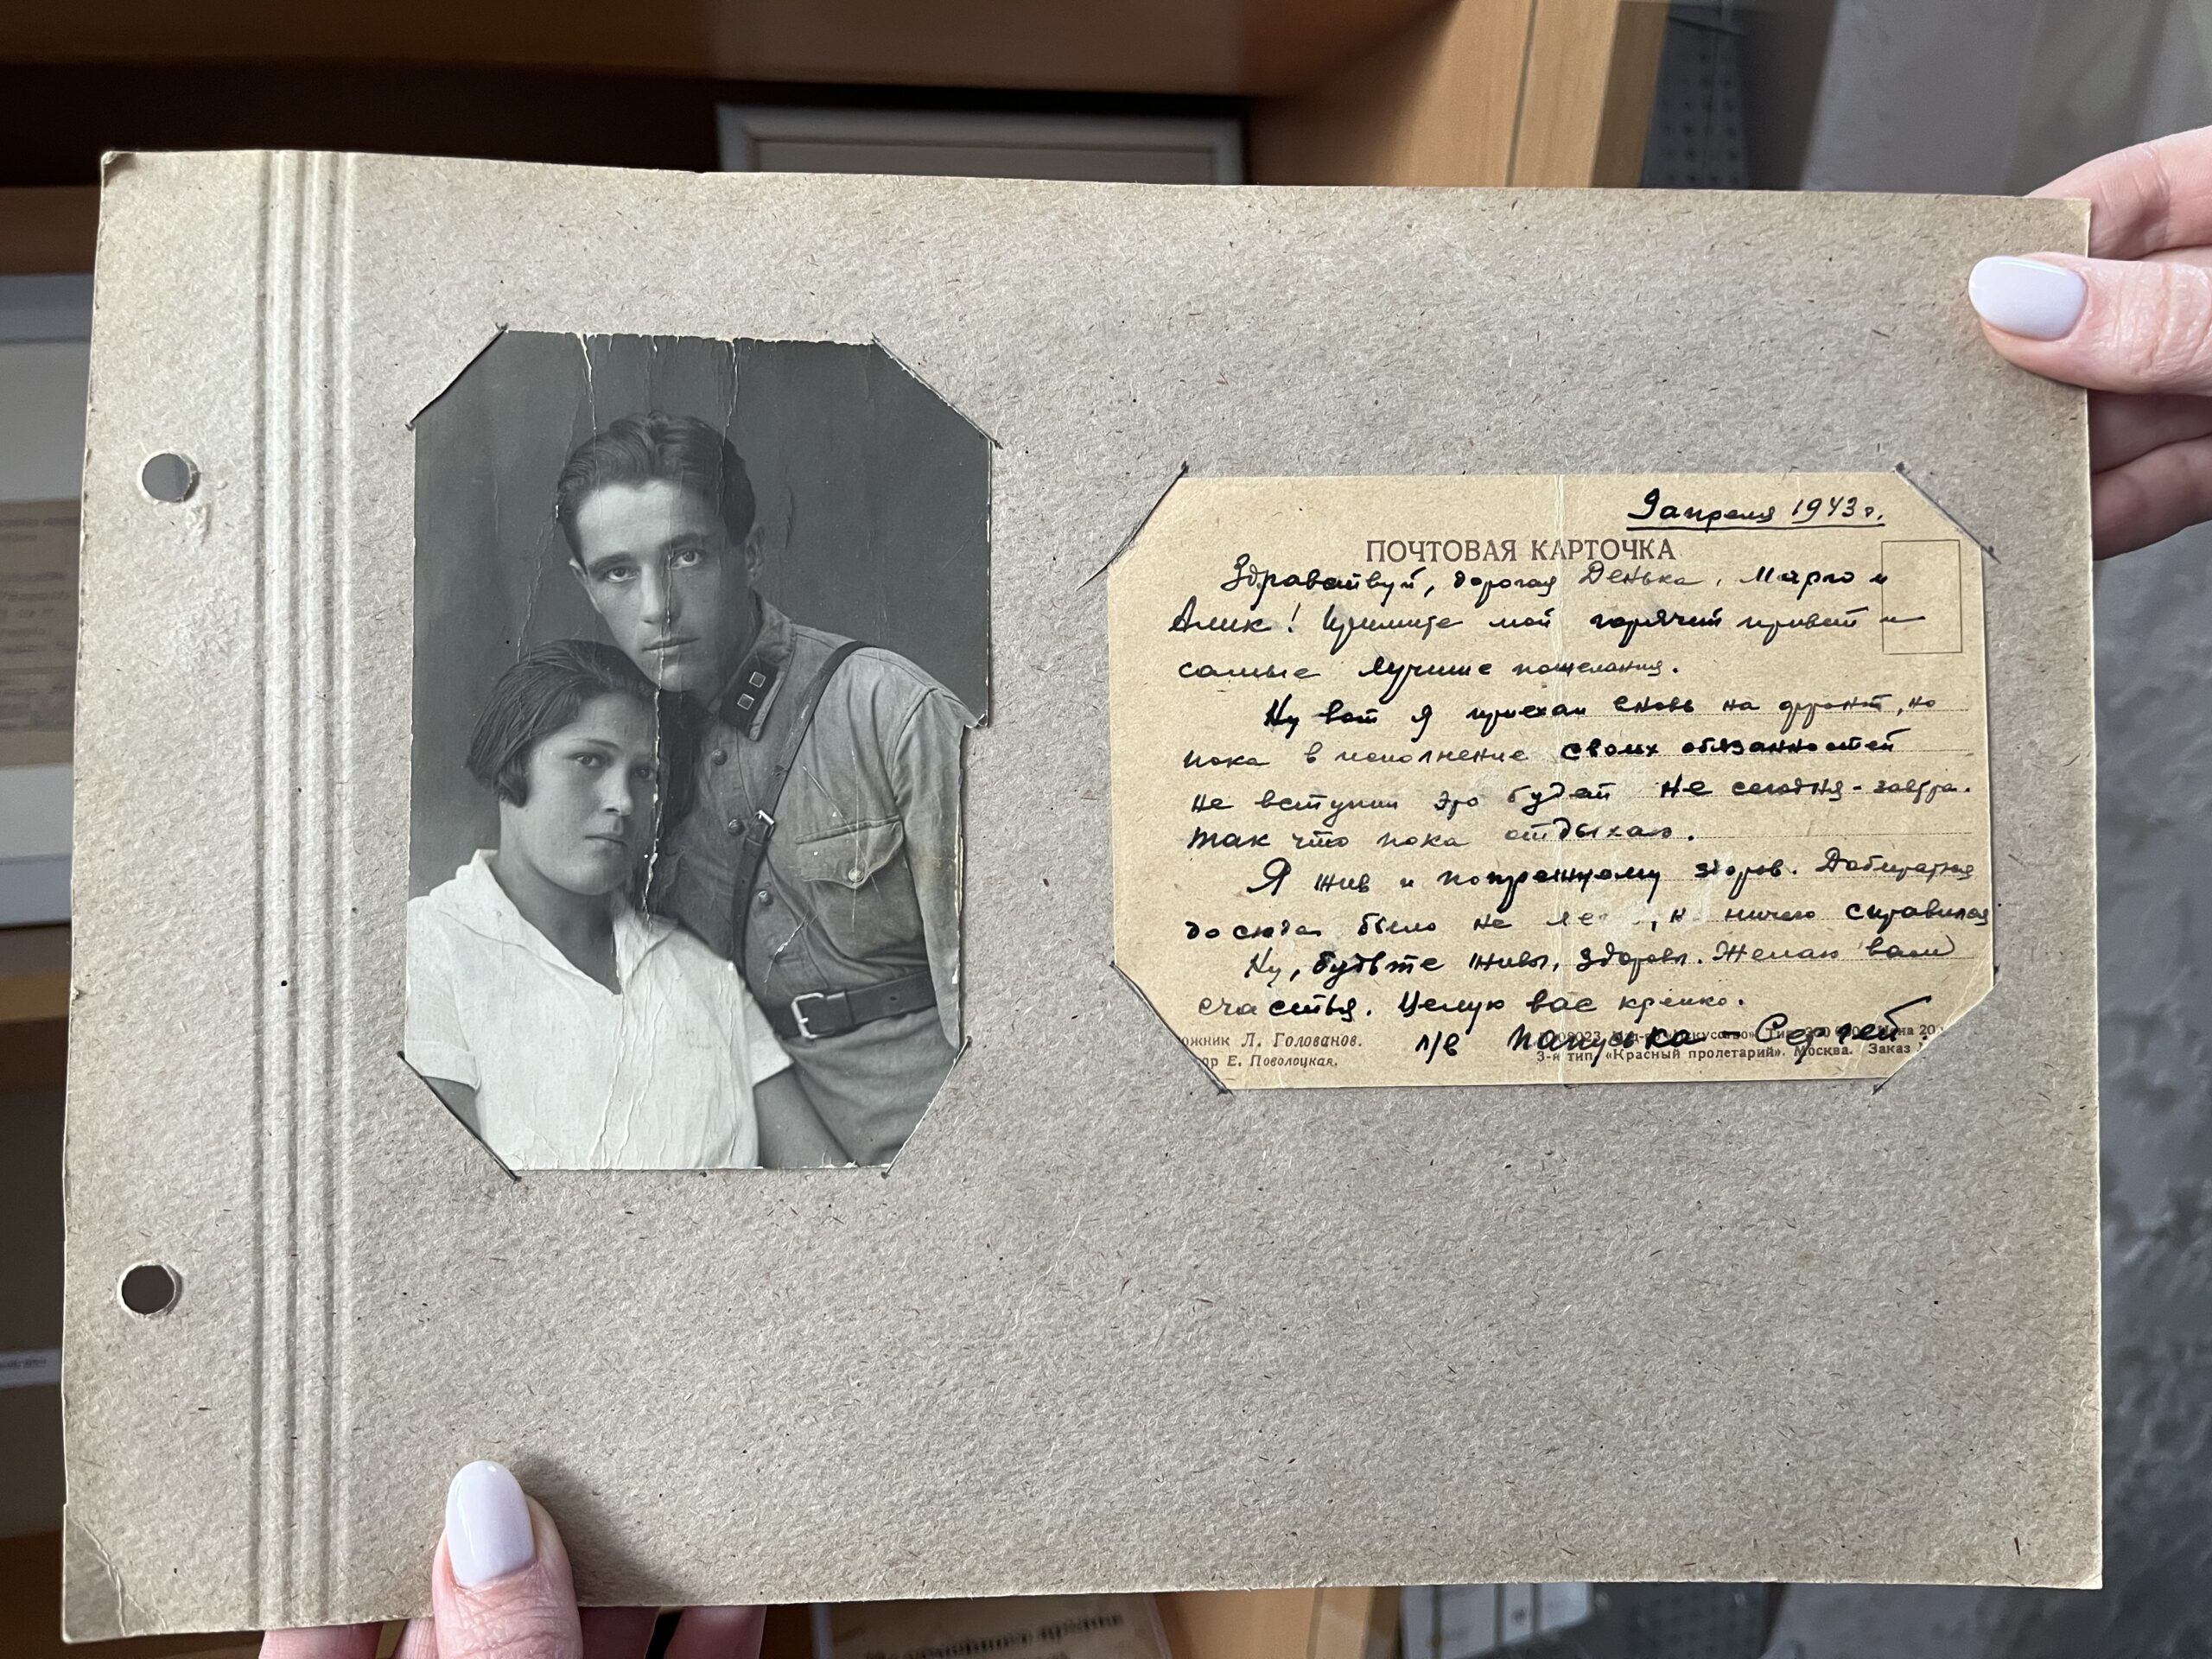 9 апреля 1943 г.
ПОЧТОВАЯ КАРТОЧКА
Здравствуй, дорогая Денька, Марго и
Алик! Примите мой горячий привет и
самые лучшие пожелания.
Ну вот я приехал вновь на фронт, но
пока в исполнение своих обязанностей
не вступил это будет не сегодня-завтра.
Так что пока отдыхаю.
Я жив и попрежнему здоров. Добираться
до сюда было не ничего справился
Ну, будьте живы, здоровы. Желаю вам
счастья. Целую вас крепко.
п/в Папулька-Сергей.
ожник Л. Голованов.
ор Е. Поволоцкая.
Цена 20
3-я тип. «Красный пролетарий». Москва. Заказ